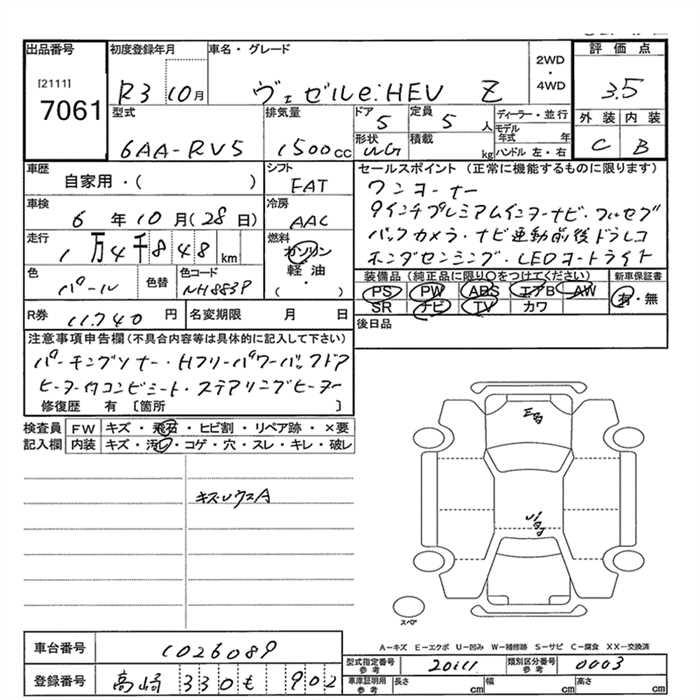 出品番号
[2111]
7061
初度登録年月
R3 10月
車名・グレード
ヴェゼルe:HEV Z
2WD
・
4WD
評価点
3.5
外装 内装
C B
型式
6AA-RV5
排気量
1500cc
ドア
5
定員
5人
形状
積載
kg
ディーラー・並行
モデル年式 年
ハンドル 左・右
車歴
自家用・( )
シフト
FAT
車検
6年10月(28日)
冷房
AAC
走行
1万4千848km
燃料
ガソリン
軽油・
( )
色
パール
色替
色コード
NH883P
R券
11,740円
名変期限 月 日
セールスポイント(正常に機能するものに限ります)
ワンオーナー
9インチプレミアムインターナビ・フルセグ
バックカメラ・ナビ連動前後ドラレコ
ホンダセンシング・LEDオートライト
装備品(純正品に限り○をつけてください)
PS PW ABS エアB AW
SR ナビ TV カワ
新車保証書
有・無
後日品
注意事項申告欄(不具合内容等は具体的に記入して下さい)
パーキングソナー・Hフリーパワーバックドア
ヒーター付コンビシート・ステアリングヒーター
修復歴 有〔箇所 〕
検査員記入欄
FW キズ・飛石・ヒビ割・リペア跡・×要
内装 キズ・汚レ・コゲ・穴・スレ・キレ・破レ
スペア
A-キズ E-エクボ U-凹み W-補修跡 S-サビ C-腐食 XX-交換済
車台番号
1026089
登録番号
高崎 330 も 902
型式指定番号
参考
20111
類別区分番号
参考
0003
車庫証明用
参考
長さ cm 幅 cm 高さ cm